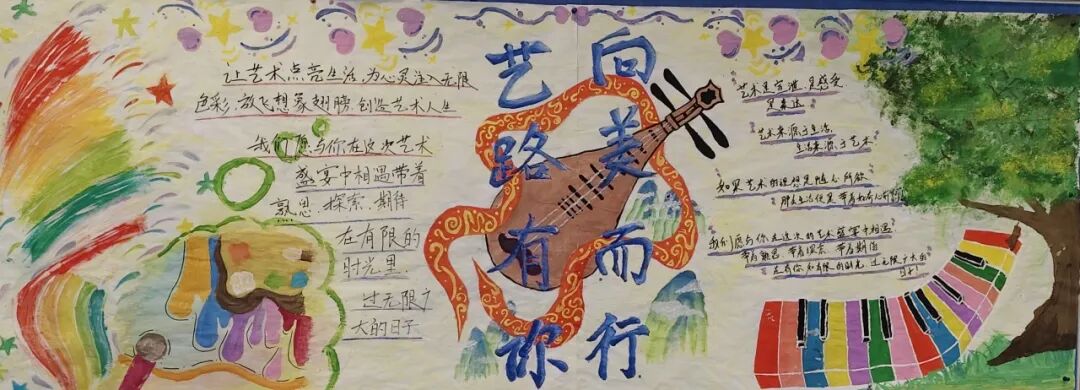 让艺术点亮生活,为心灵注入无限
色彩,放飞想象翅膀,创造艺术人生
我们愿与你在这次艺术
盛宴中相遇带着
熟思.探索.期待
在有限的
时光里
过无限广
大的日子
向美而行
艺路有你
艺术是宣泄,是感受
是表达
艺术来源于生活
生活来源于艺术
如果艺术的理想是随心所欲
我们愿与你在这次的艺术盛宴中相遇
带着熟思 带着探索 带着期待
在有你和有限的时光,过无限广大的
日子